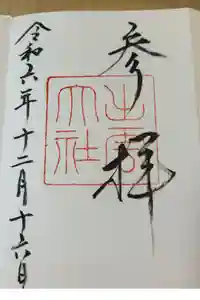 参拝
出雲
大社
令和六年十二月十六日